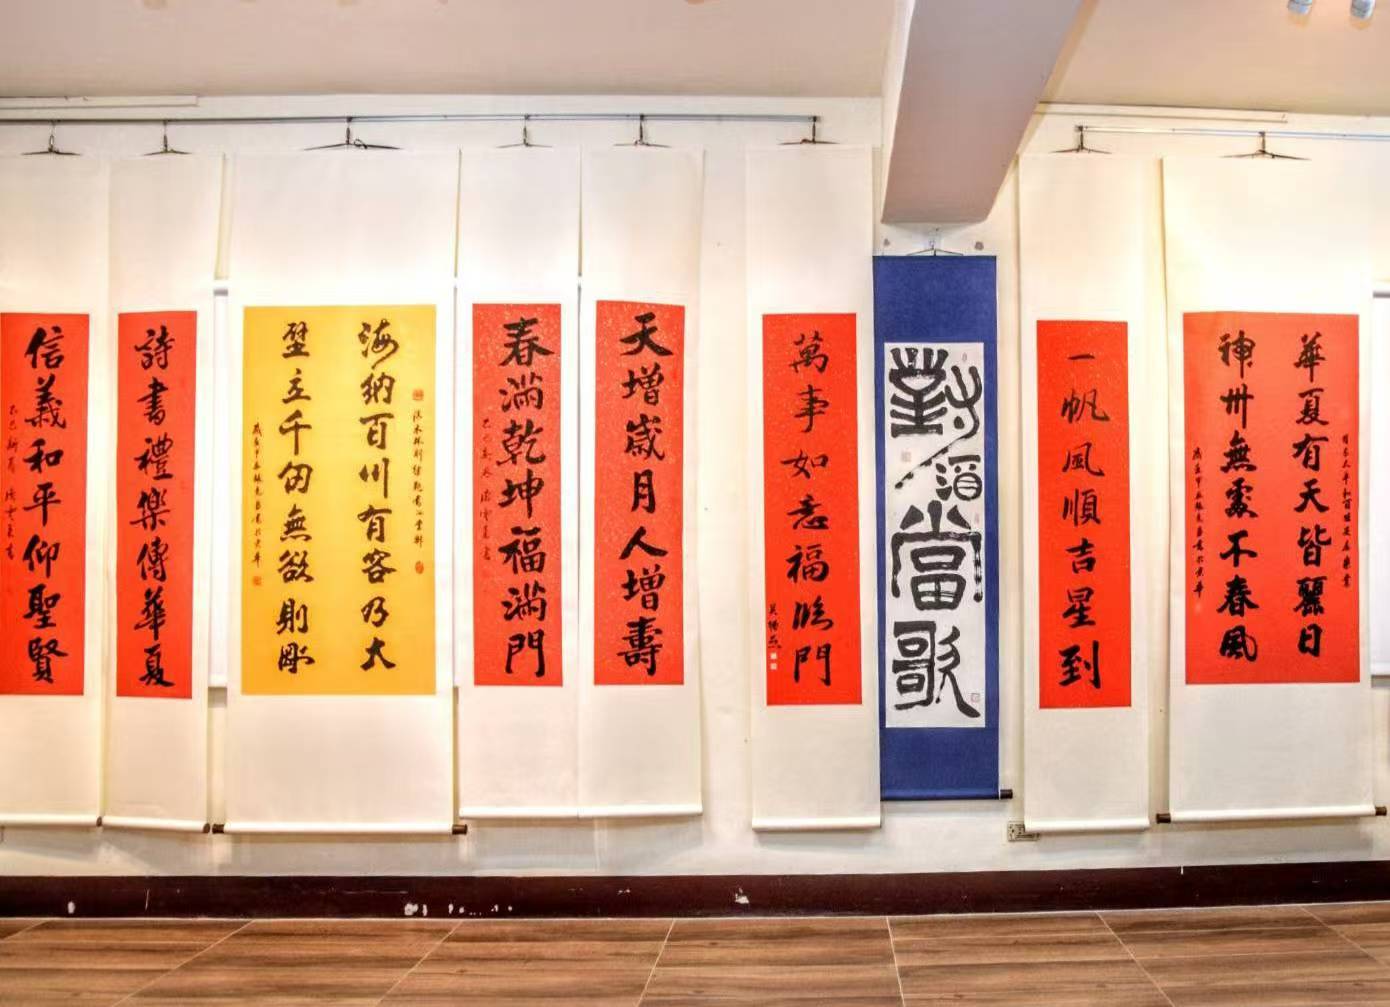 華夏有天皆麗日
神州無處不春風
一帆風順吉星到
對酒當歌
萬事如意福臨門
天增歲月人增壽
春滿乾坤福滿門
海納百川有容乃大
壁立千仞無欲則剛
詩書禮樂傳華夏
信義和平仰聖賢